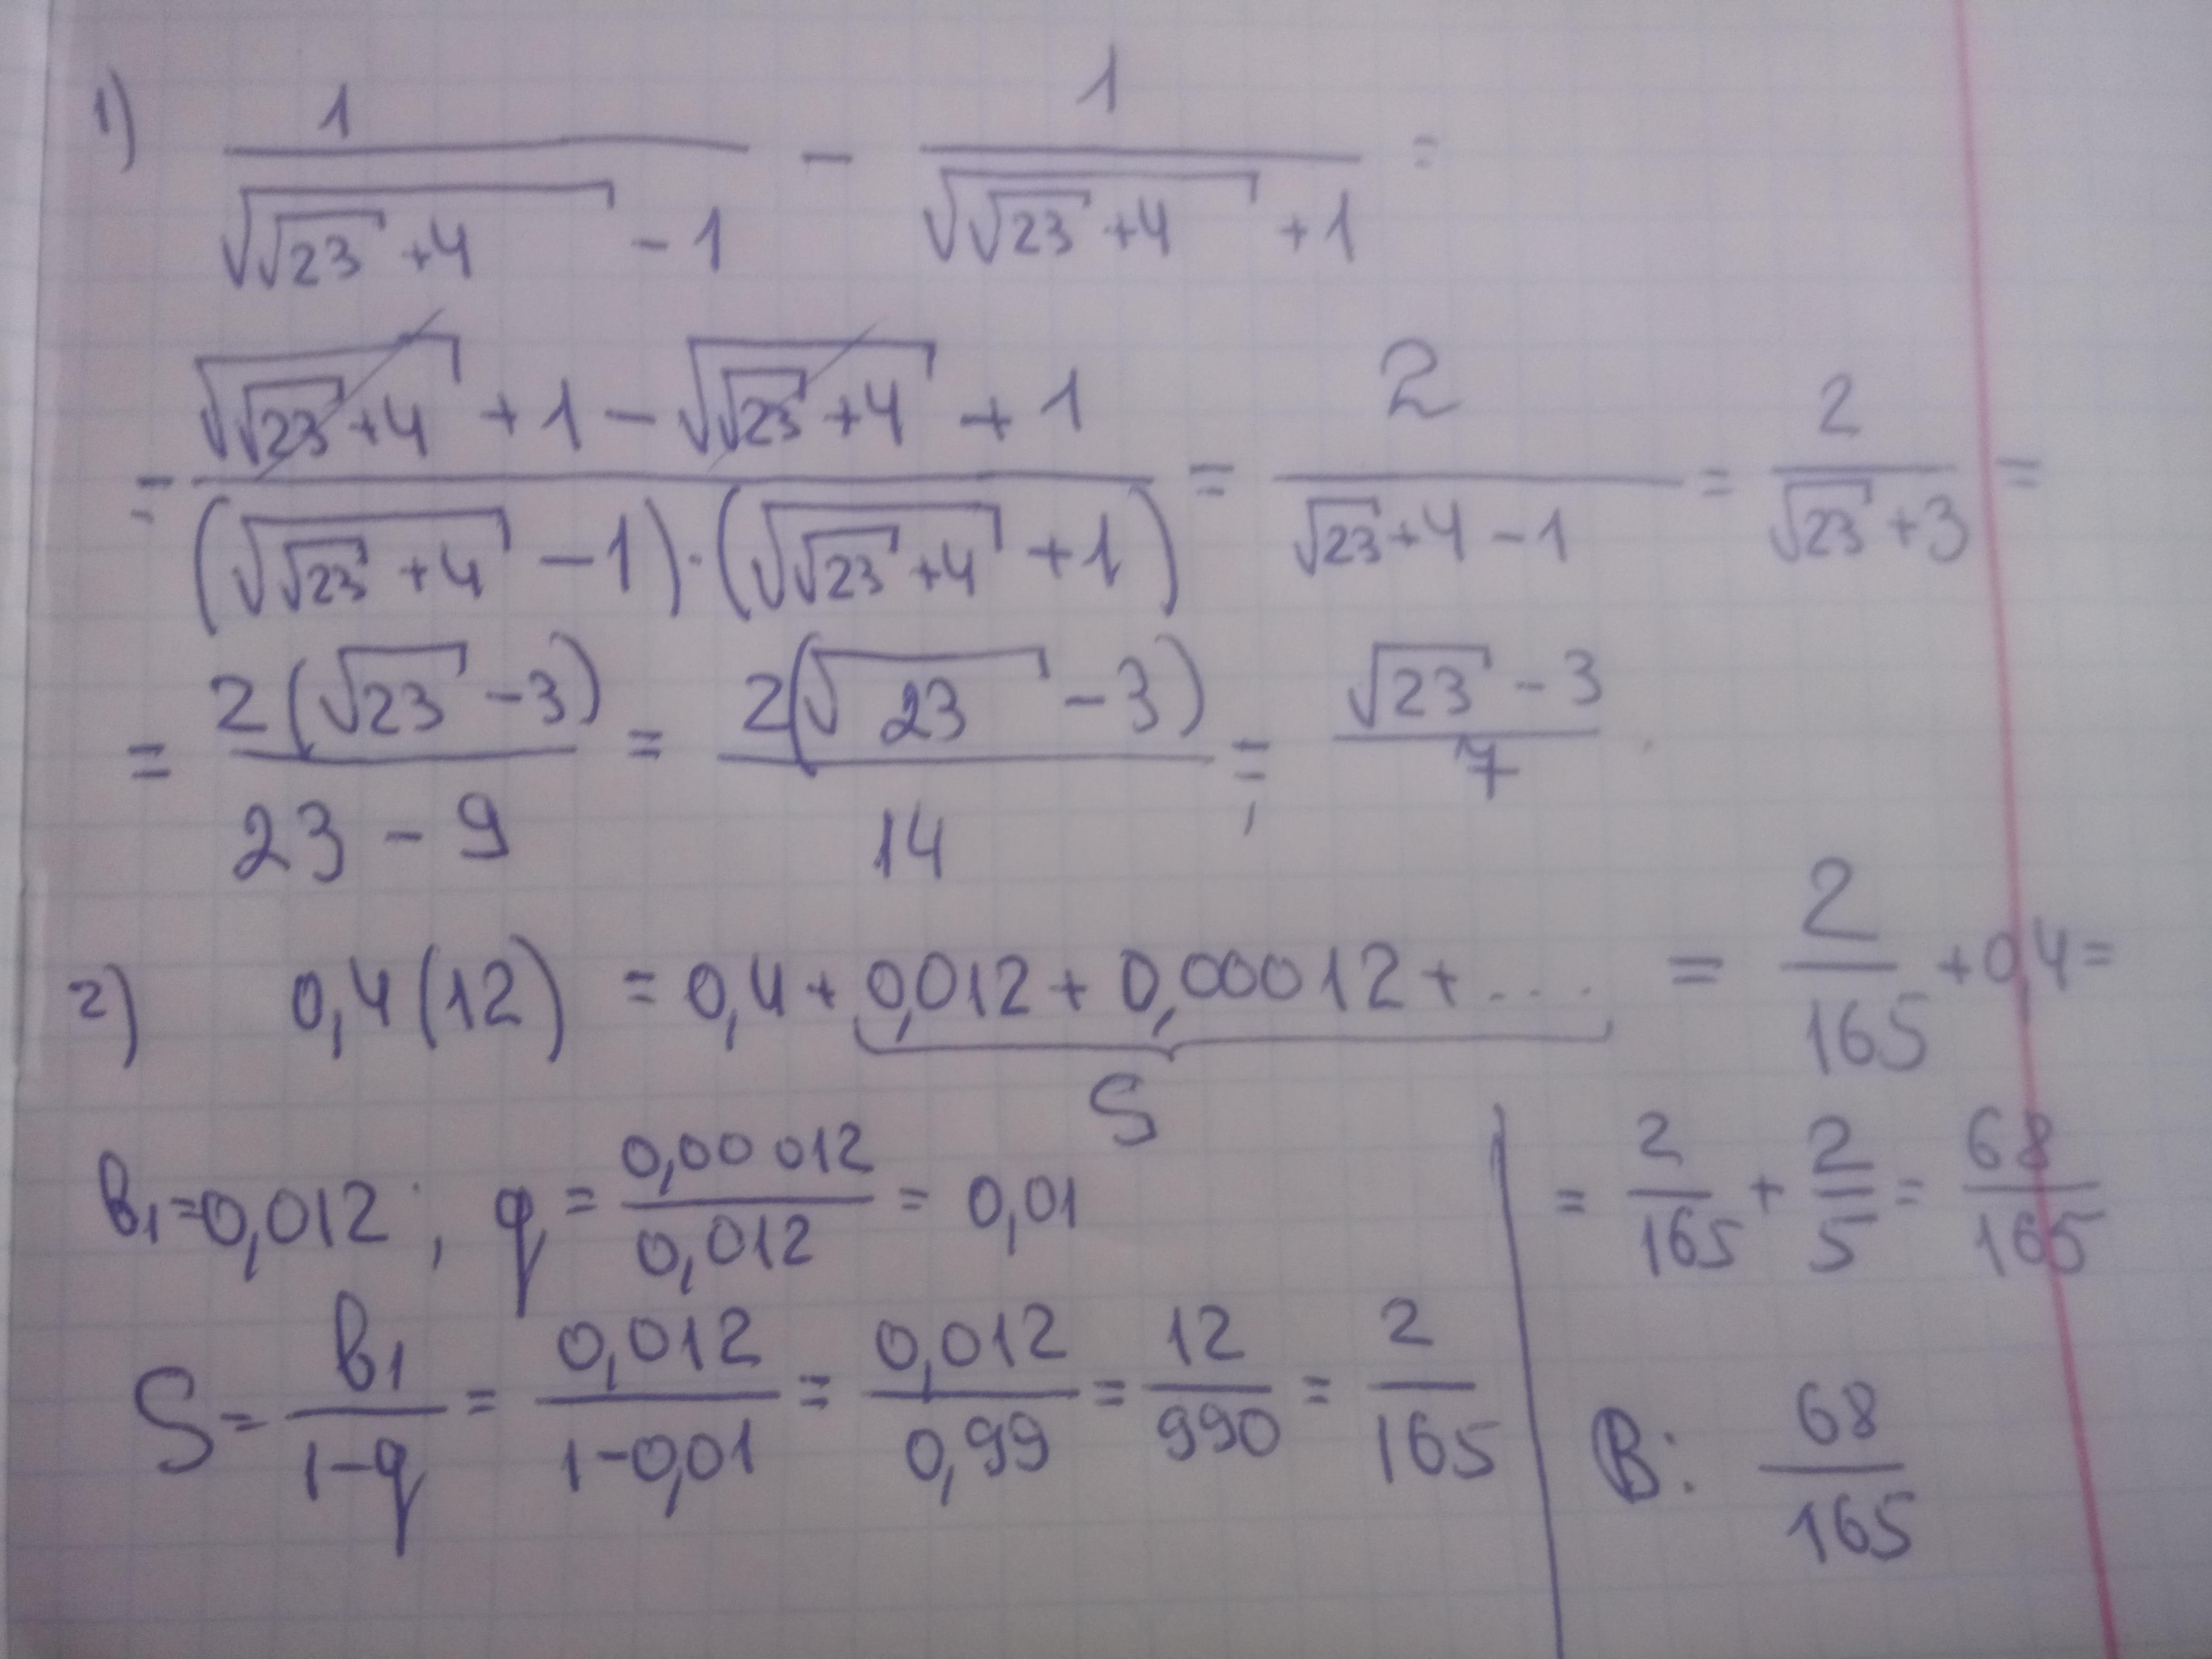 1) 1/(√(√23 + 4) - 1) - 1/(√(√23 + 4) + 1) =
= (√(√23 + 4) + 1 - √(√23 + 4) + 1)/((√(√23 + 4) - 1) · (√(√23 + 4) + 1)) = 2/(√23 + 4 - 1) = 2/(√23 + 3) =
= 2(√23 - 3)/(23 - 9) = 2(√23 - 3)/14 = (√23 - 3)/7.
2) 0,4(12) = 0,4 + 0,012 + 0,00012 + .... = 2/165 + 0,4 =
S
b₁ = 0,012 ; q = 0,00012/0,012 = 0,01
= 2/165 + 2/5 = 68/165
S = b₁/(1-q) = 0,012/(1-0,01) = 0,012/0,99 = 12/990 = 2/165
В: 68/165